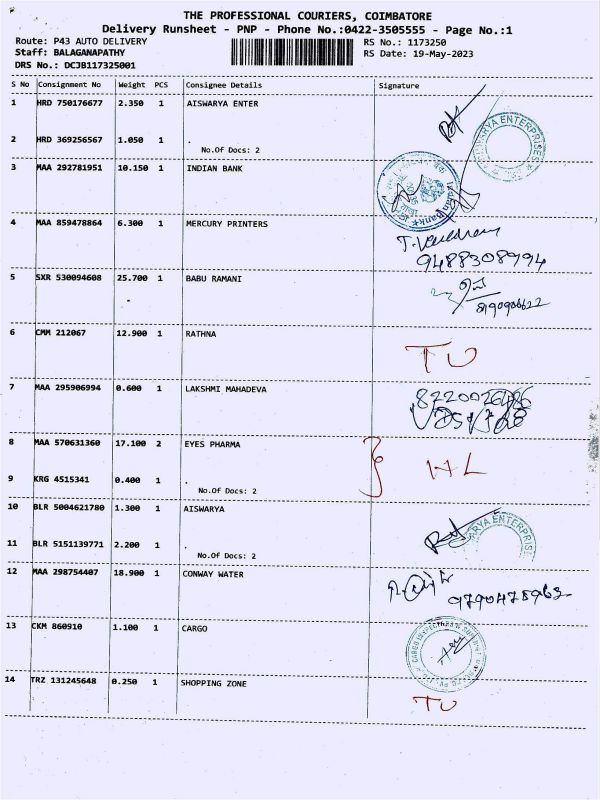 THE PROFESSIONAL COURIERS, COIMBATORE
Delivery Runsheet - PNP - Phone No.:0422-3505555 - Page No.:1
Route: P43 AUTO DELIVERY
RS No.: 1173250
Staff: BALAGANAPATHY
RS Date: 19-May-2023
DRS No.: DCJB117325001
S No Consignment No Weight PCS Consignee Details Signature
1 HRD 750176677 2.350 1 AISWARYA ENTER
2 HRD 369256567 1.050 1 .
No.Of Docs: 2
3 MAA 292781951 10.150 1 INDIAN BANK
4 MAA 859478864 6.300 1 MERCURY PRINTERS
9488308994
5 SXR 530094608 25.700 1 BABU RAMANI
6 CMM 212067 12.900 1 RATHNA
TU
7 MAA 295906994 0.600 1 LAKSHMI MAHADEVA
8 MAA 570631360 17.100 2 EYES PHARMA
9 KRG 4515341 0.400 1 .
No.Of Docs: 2
10 BLR 5004621780 1.300 1 AISWARYA
11 BLR 5151139771 2.200 1 .
No.Of Docs: 2
12 MAA 298754407 18.900 1 CONWAY WATER
13 CKM 860910 1.100 1 CARGO
14 TRZ 131245648 0.250 1 SHOPPING ZONE
TU